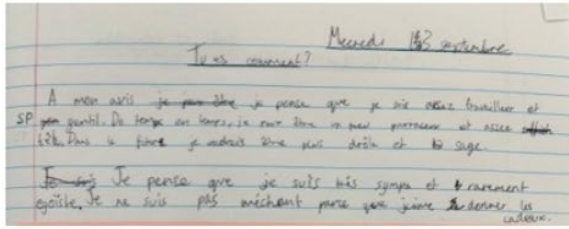 Mecredi 13 septembre
Tu es comment?
A mon avis je peux être je pense que je suis assez travailleur et
SP gentil. De temps en temps, je peux être un peu et assez
Dans le future je voudrais être plus drôle et sage.
Je suis Je pense que je suis très sympa et rarement
egoïste. Je ne suis pas méchant parce que j'aime donner les
cadeaux.